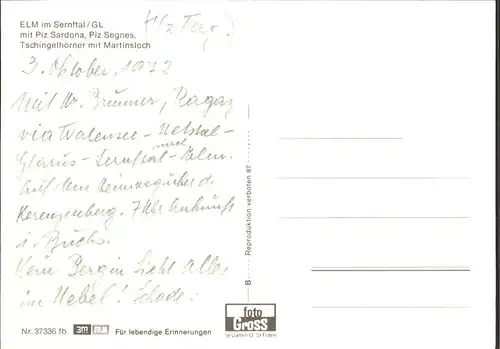 ELM im Sernftal/GL
mit Piz Sardona, Piz Segnes,
Tschingelhörner mit Martinsloch
(1/2 Tag.)
3. Oktober, 1972
Mit Hr. Brunner, Ragaz
via Walensee - Netstal -
Glarus - Sernftal - nach Elm.
Auf dem Heimweg über d.
Kerenzerberg. 7 Uhr Ankunft
i. Buchs.
Kein Berg in Sicht alles
im Nebel! Schade.
Nr. 37336 fb.
3m
Für lebendige Erinnerungen
B
Reproduktion verboten 87
foto
Gross
St. Gallen O. St. Fiden